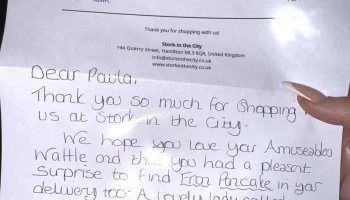 Thank you for shopping with us
Stork in the City
194 Quarry Street, Hamilton ML3 6QR, United Kingdom
info@storkinthecity.co.uk
www.storkinthecity.co.uk
Dear Paula,
Thank you so much for Shopping
us at Stork in the City.
We hope you love your Amuseables
Waffle and you had a pleasant
Surprise to find Pancake in your
delivery too- A lovely lady called